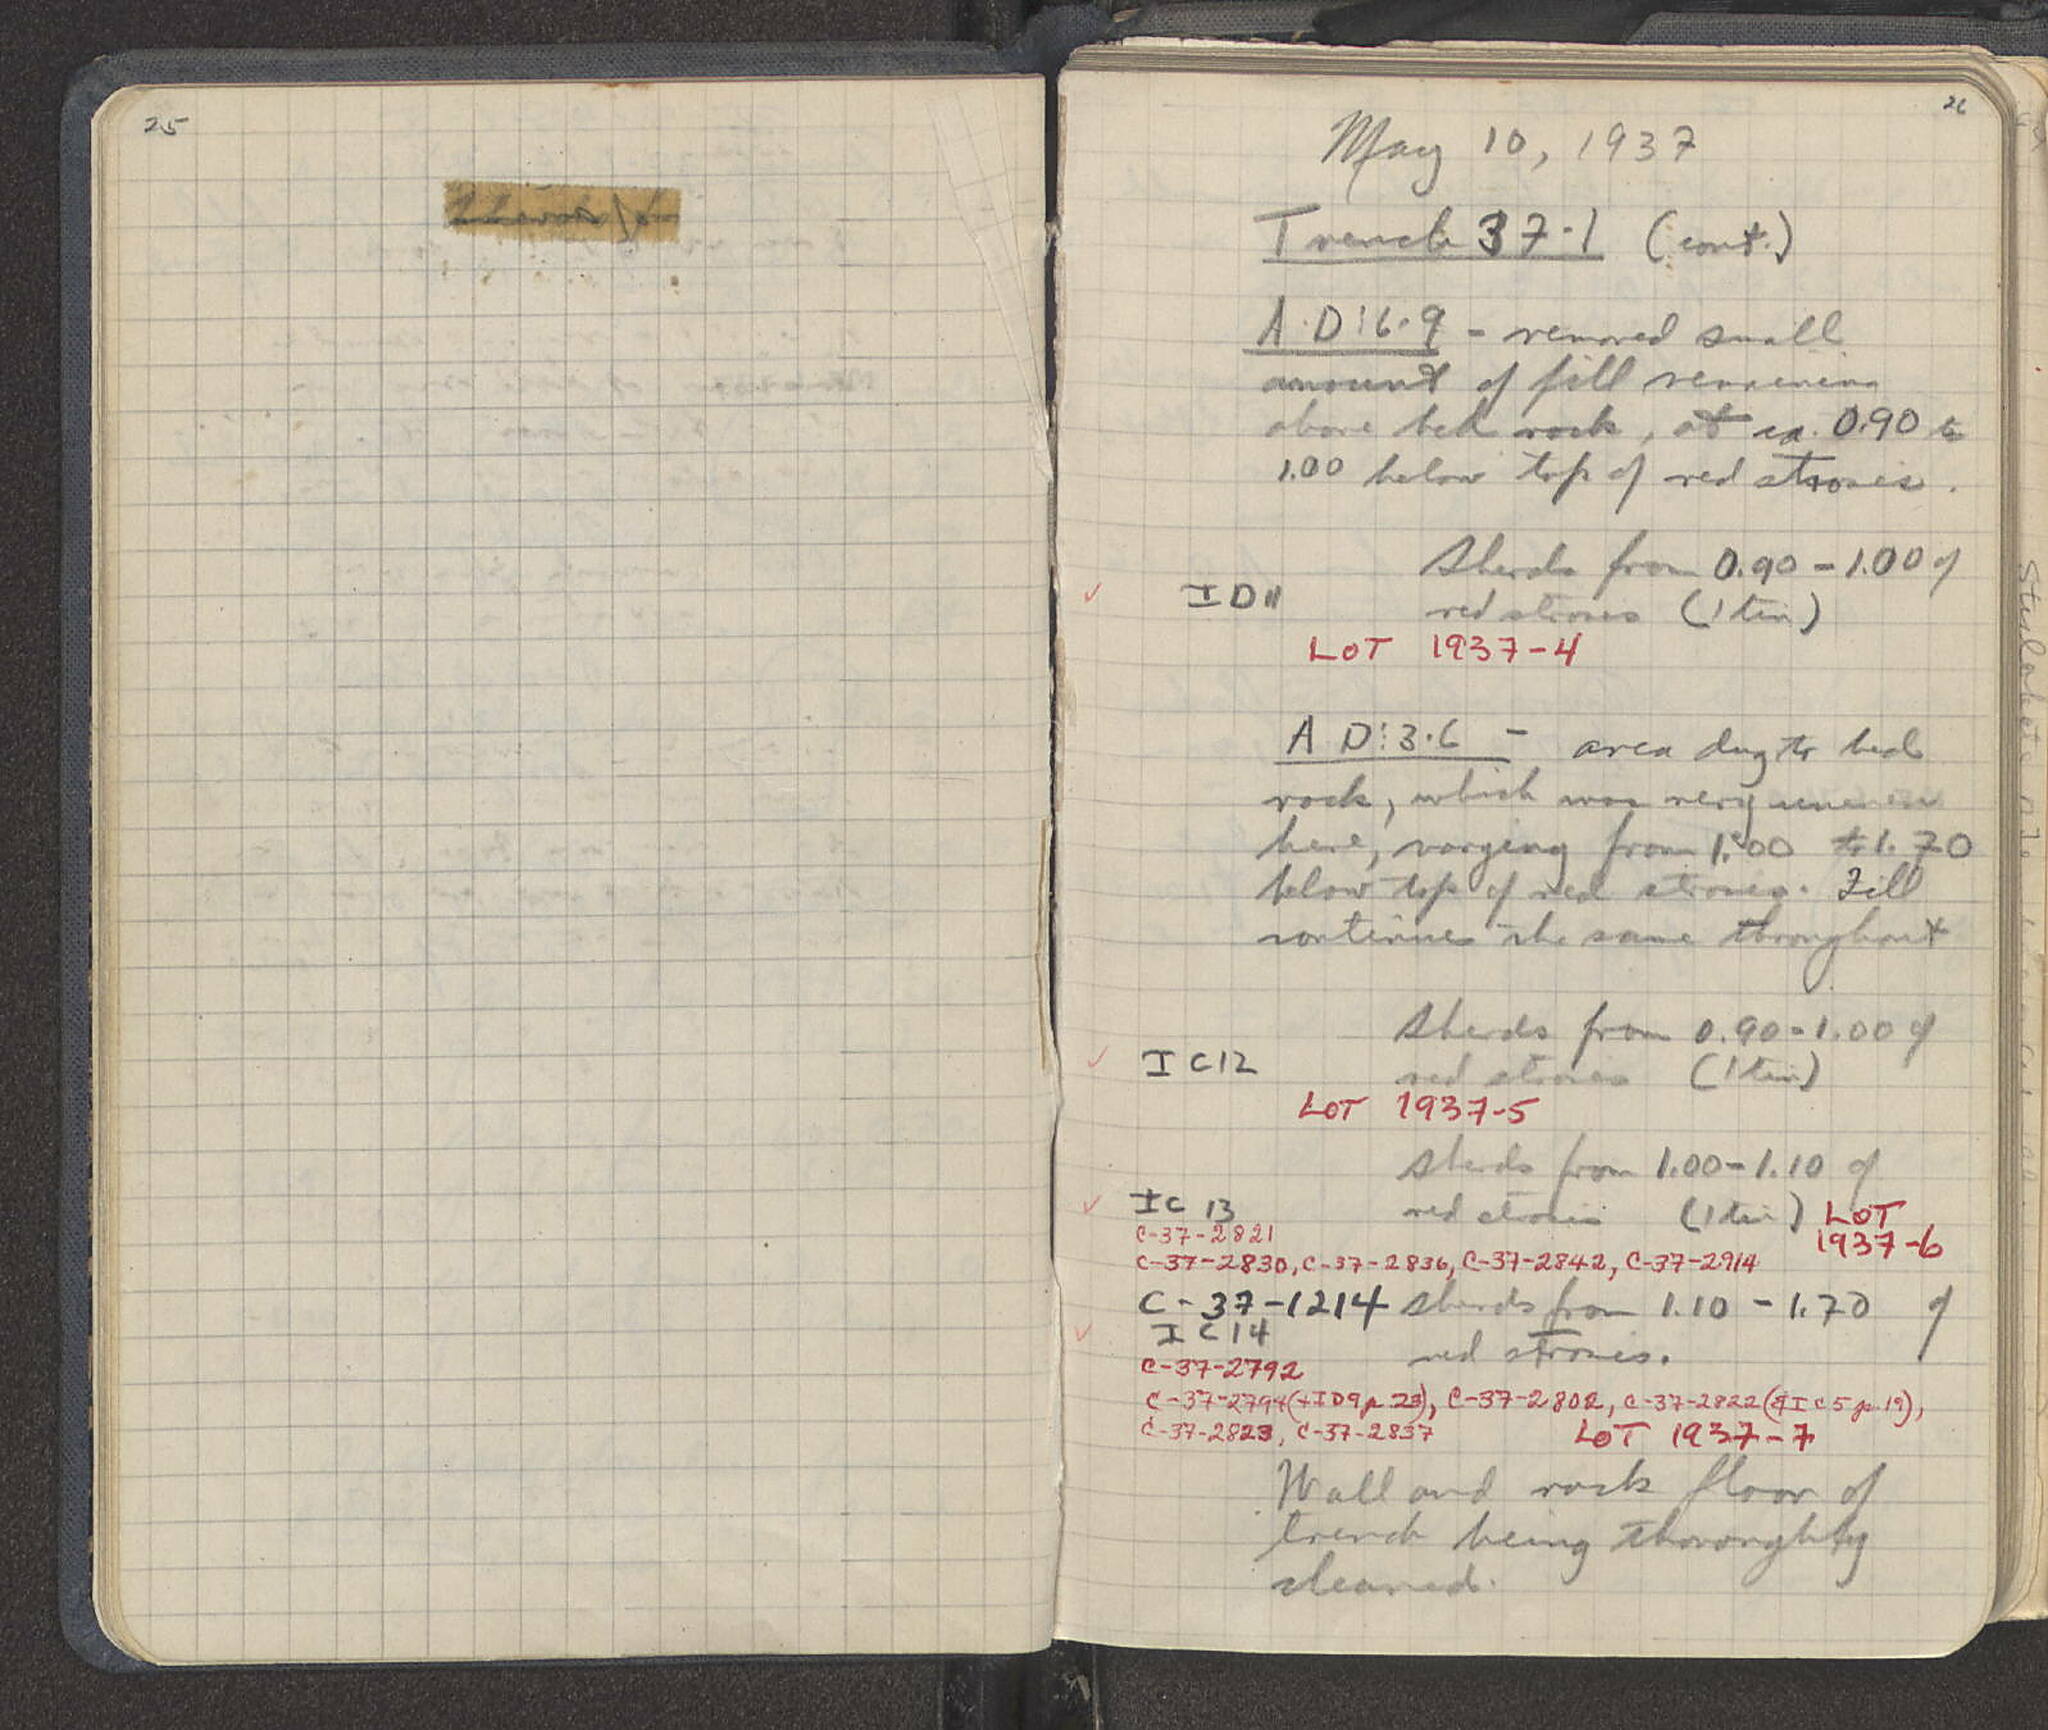 25
26
May 10, 1937
Trench 37-1 (cont.)
A-D:6-9 - removed small
amount of fill remaining
above bed rock, at ca. 0.90 to
1.00 below top of red stroses.
Sherds from 0.90 - 1.00 of
I D 11
red stroses (1 tin)
LOT 1937-4
A-D:3-6 - area dug to bed
rock, which was very uneven
here, varying from 1.00 to 1.70
below top of red stroses. Fill
continues the same throughout
Sherds from 0.90-1.00 of
I C 12
red stroses (1 tin)
LOT 1937-5
Sherds from 1.00-1.10 of
I C 13
red stroses (1 tin) LOT
1937-6
C-37-2821
C-37-2830, C-37-2836, C-37-2842, C-37-2914
C-37-1214 sherds from 1.10 - 1.70 of
I C 14
red stroses.
C-37-2792
C-37-2794 (+ID9 p. 23), C-37-2802, C-37-2822 (+IC5 p. 19),
C-37-2823, C-37-2837 LOT 1937-7
Wall and rock floor of
trench being thoroughly
cleaned.